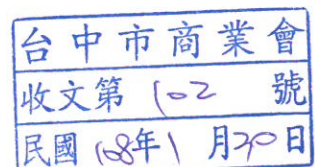 台中市商業會
收文第 102 號
民國 108年 1 月30日